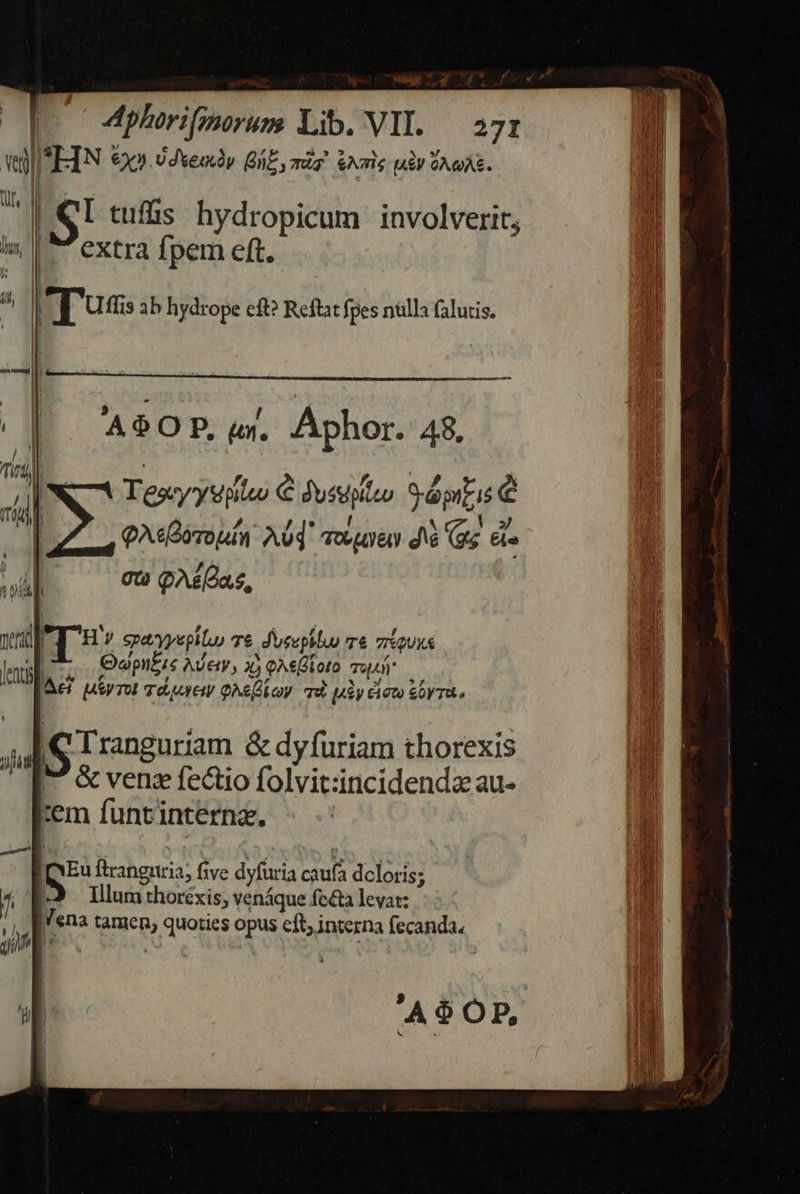 Aphoriſmorum Lib. VII. 271
ἪΝ ἔχῃ ὑδρωπικὸν βὴξ, πᾶσ' ἐλπὶς μὲν ὄλωλε.
SI tuſſis hydropicum involverit,
extra ſpem eſt.
TUſſis ab hydrope eſt? Reſtat ſpes nulla ſalutis.
ἈΦΟΡ. μή. Aphor. 48.
Στραγγουρίην & δυσουρίην θώρηξις &
φλεβοτομίη λύει· τάμνειν δὲ τὰς εἴσω
φλέβας,
Ἢν στραγγουρίην τε δυσουρίην τε πέφυκε
Θώρηξις λύειν, καὶ φλεβίοιο τομή·
Δεῖ μέντοι τάμνειν φλεβίων τὰ μὲν εἴσω ἐόντα.
STranguriam & dyſuriam thorexis
& venæ ſectio ſolvit: incidendæ au-
tem ſunt internæ.
SEu ſtranguria, ſive dyſuria cauſa doloris;
Illum thorexis, venáque ſecta levat:
Vena tamen, quoties opus eſt, interna ſecanda.
ἈΦΟΡ,